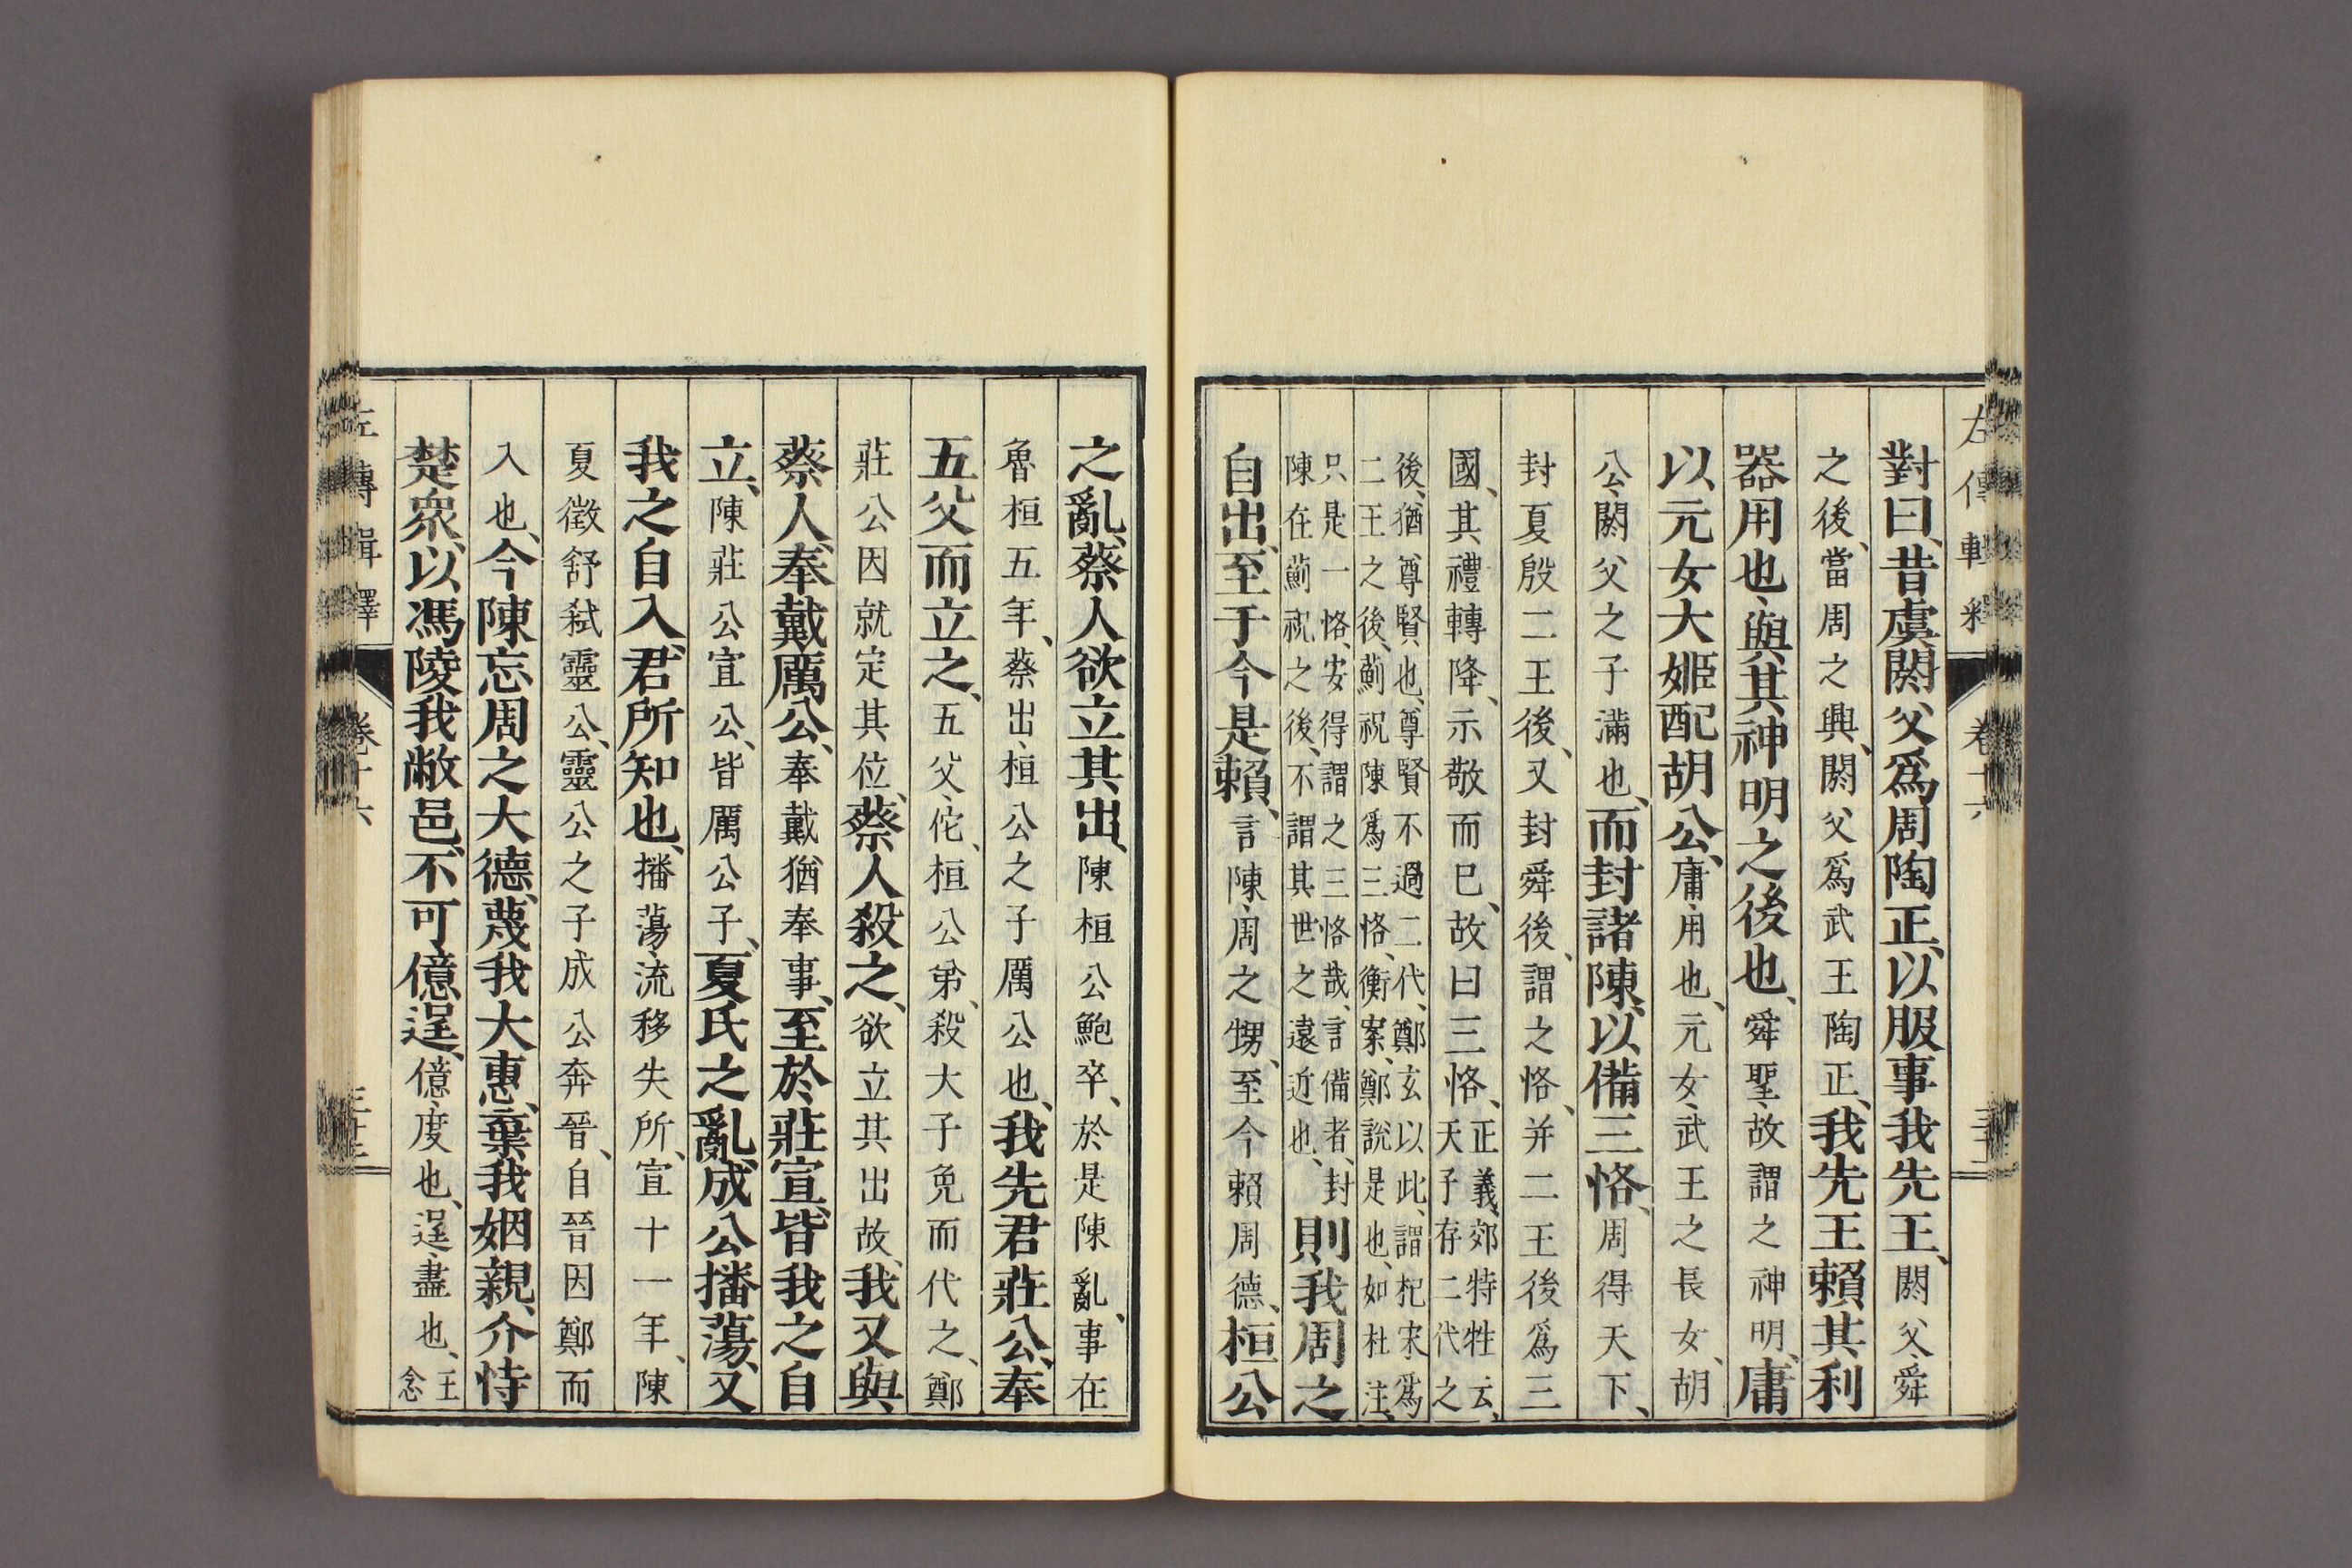 對曰、昔虞閼父爲周陶正、以服事我先王、閼父、舜
之後、當周之興、閼父爲武王陶正、我先王賴其利
器用也、與其神明之後也、舜聖、故謂之神明、庸
以元女大姬配胡公、庸、用也、元女、武王之長女、胡
公、閼父之子滿也、而封諸陳、以備三恪、周得天下、
封夏殷二王後、又封舜後、謂之恪、并二王後爲三
國、其禮轉降、示敬而已、故曰三恪、正義、郊特牲云、
天子存二代之
後、猶尊賢也、尊賢不過二代、鄭玄以此、謂杞宋爲
二王之後、薊祝陳爲三恪、衡案、鄭說是也、如杜注、
只是一恪、安得謂之三恪哉、言備者、封
陳在薊祝之後、不謂其世之遠近也、則我周之
自出、至于今是賴、言陳、周之甥、至今賴周德、桓公
之亂、蔡人欲立其出、陳桓公鮑卒、於是陳亂、事在
魯桓五年、蔡出、桓公之子厲公也、我先君莊公、奉
五父而立之、五父、佗、桓公弟、殺大子免而代之、鄭
莊公因就定其位、蔡人殺之、欲立其出故、我又與
蔡人、奉戴厲公、奉戴猶奉事、至於莊宣、皆我之自
立、陳莊公宣公、皆厲公子、夏氏之亂、成公播蕩、又
我之自入、君所知也、播蕩、流移失所、宣十一年、陳
夏徵舒弒靈公、靈公之子成公奔晉、自晉因鄭而
入也、今陳忘周之大德、蔑我大惠、棄我姻親、介恃
楚眾、以馮陵我敝邑、不可億逞、億、度也、逞、盡也、王
念
左傳輯釋
卷十六